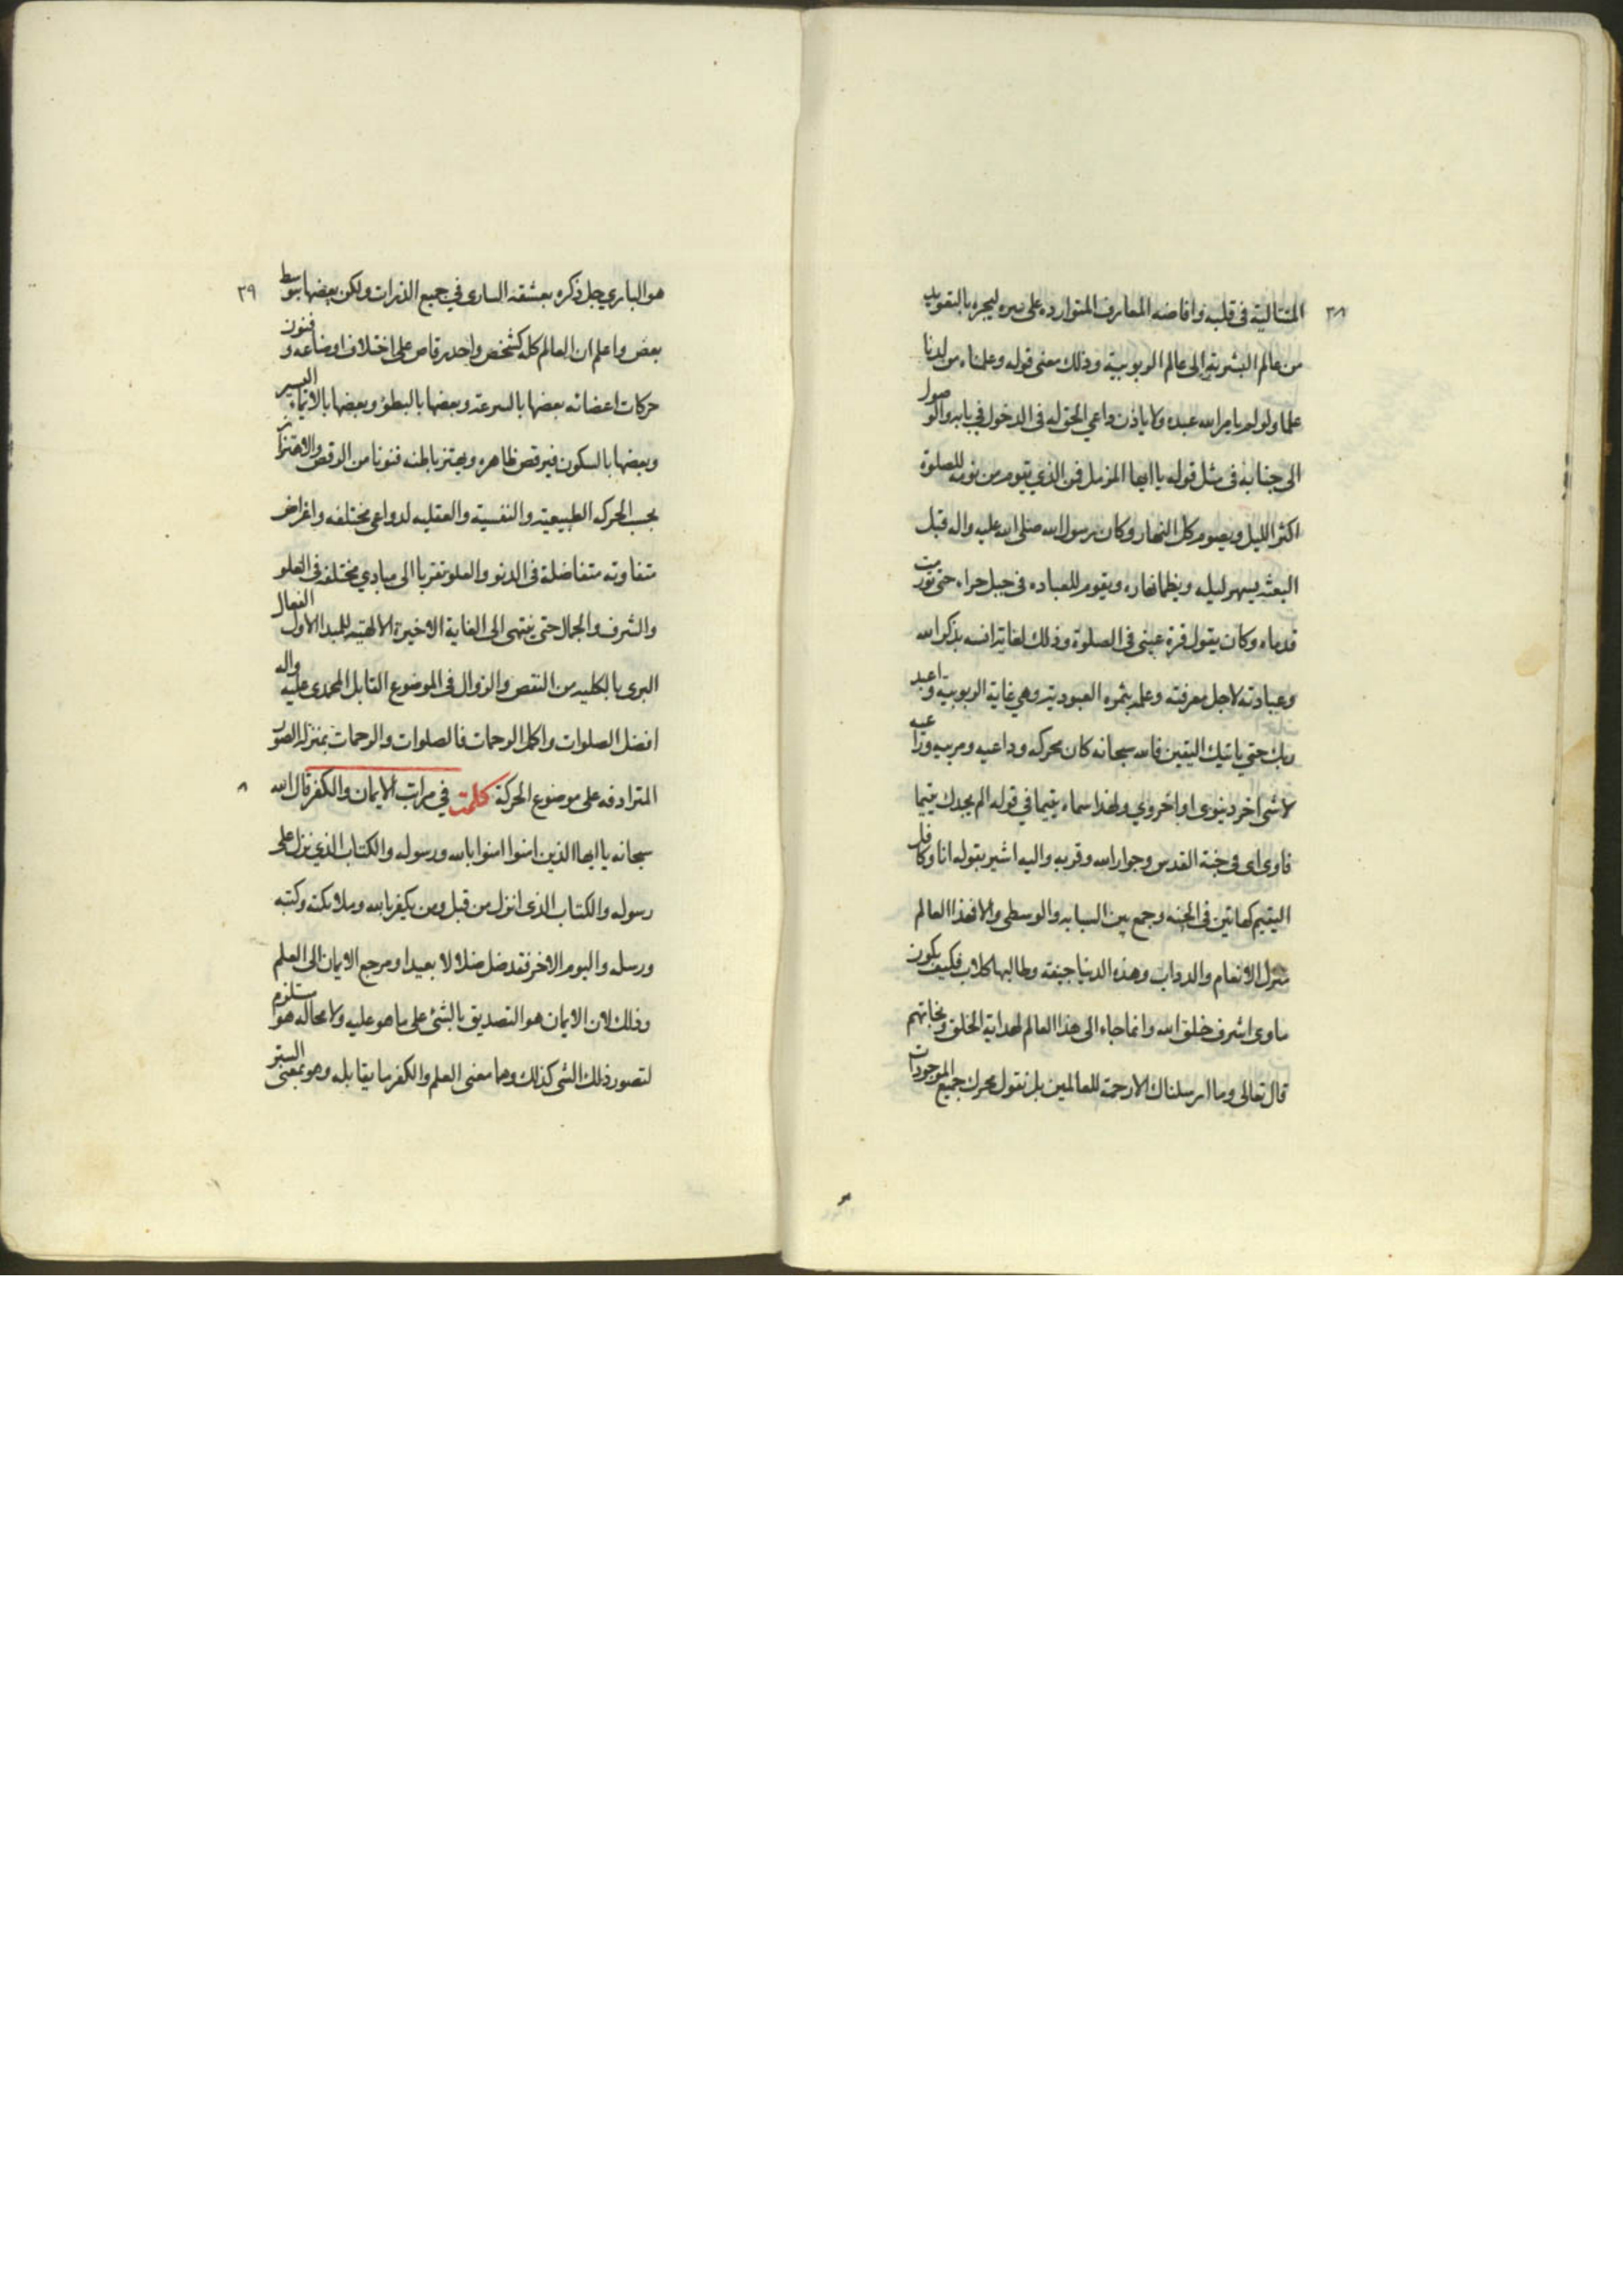 ٣٨
المتتالية فى قلبه وافاضه المعارف المتوارده على سره ليجره بالتقويب
من عالم البشريه الى عالم الربوبية وذلك معنى قوله وعلمناه من لدنا
علما ولو لم يامر الله عبده ولا ياذن داعي الحق له فى الدخول في بابه والوصول
الى جنابه فى مثل قوله يا ايها المزمل فمن الذي يقوم من نومه للصلوة
اكثر الليل ويصوم كل النهار وكان رسول الله صلى الله عليه واله قبل
البعثه يسهر ليله ويظما نهاره ويقوم للعباده فى جبل حراء حتى تورمت
قدماه وكان يقول قرة عينى فى الصلوة وذلك لغاية انسه بذكر الله
وعبادته لاجل معرفته وعلمه بثمره العبوديه وهي غاية الربوبيه واعبد
ربك حتي ياتيك اليقين فالله سبحانه كان محركه وداعيه ومربيه وراعيه
لا شى اخر دنيوى او اخروي ولهذا سماه يتيما في قوله الم يجدك يتيما
فاوى اى فى جنة القدس وجوار الله وقربه واليه اشير بقوله انا وكافل
اليتيم كهاتين فى الجنه وجمع بين السبابه والوسطى والا فهذا العالم
منزل الانعام والدواب وهذه الدنيا جيفة وطالبها كلاب فكيف يكون
ماوى اشرف خلق الله وانما جاء الى هذا العالم لهداية الخلق ونجاتهم
قال تعالى وما ارسلناك الا رحمة للعالمين بل نقول محرك جميع الموجودات
٣٩
هو الباري جل ذكره بعشقه السارى في جميع الذرات ولكن بعضها بتوسط
بعض واعلم ان العالم كله كشخص واحد رقاص على اختلاف اوضاعه وفنون
حركات اعضائه بعضها بالسرعة وبعضها بالبطؤ وبعضها بالايماء اليسير
وبعضها بالسكون فيرقص ظاهره ويهتز باطنه فنونا من الرقص والاهتزاز
بحسب الحركه الطبيعية والنفسية والعقليه لدواعى مختلفه واغراض
متفاوته متفاضلة فى الدنو والعلو تقربا الى مبادي مختلفه فى العلو
والشرف والجمال حتى ينتهى الى الغاية الاخيرة الالهية للمبدا الاول الفعال
البرى بالكليه من النقص والزوال فى الموضوع القابل المحمدى عليه واله
افضل الصلوات واكمل الرحمات فالصلوات والرحمات بمنزلة الصور
المترادفه على موضوع الحركة كلمة في مراتب الايمان والكفر قال الله
سبحانه يا ايها الذين امنوا امنوا بالله ورسوله والكتاب الذي نزل على
رسوله والكتاب الذى انزل من قبل ومن يكفر بالله وملائكته وكتبه
ورسله واليوم الاخر فقد ضل ضلالا بعيدا ومرجع الايمان الى العلم
وذلك لان الايمان هو التصديق بالشئ على ما هو عليه ولا محاله هو مستلزم
لتصور ذلك الشى كذلك وهما معنى العلم والكفر ما يقابله وهو بمعنى الستر